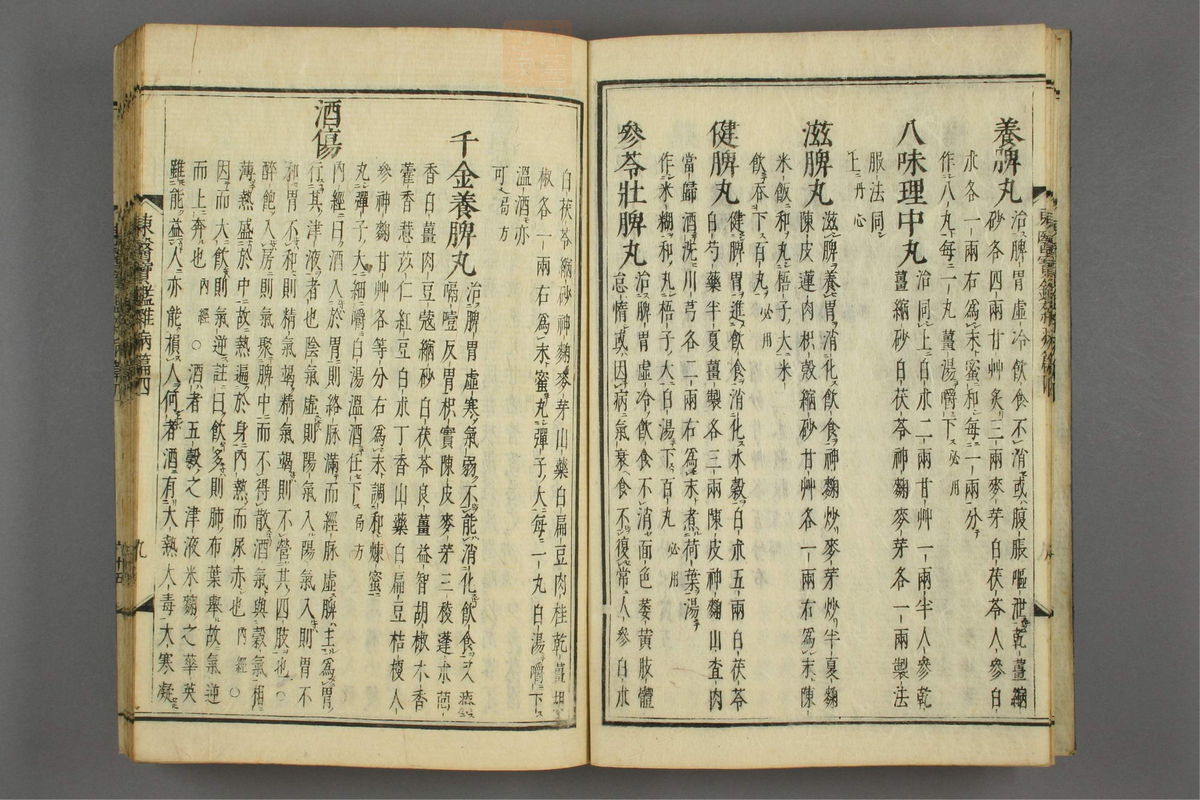 養脾丸 治脾胃虛冷飮食不消或腹脹嘔泄乾薑縮
砂各四兩甘艸炙三兩麥芽白茯苓人參白
朮各一兩右爲末蜜和每一兩分
作八丸每一丸薑湯嚼下必用
八味理中丸 治同上白朮二兩甘艸一兩半人參乾
薑縮砂白茯苓神麴麥芽各一兩製法
服法同
上丹心
滋脾丸 滋脾養胃消化飮食神麴炒麥芽炒半夏麴
陳皮蓮肉枳殼縮砂甘艸各一兩右爲末陳
米飯和丸梧子大米
飮吞下百丸必用
健脾丸 健脾胃進飮食消化水穀白朮五兩白茯苓
白芍藥半夏薑製各三兩陳皮神麴山査肉
當歸酒洗川芎各二兩右爲末煮荷葉湯
作米糊和丸梧子大白湯下百丸必用
參苓壯脾丸 治脾胃虛冷飮食不消面色萎黃肢體
怠惰或因病氣衰食不復常人參白朮
白茯苓縮砂神麴麥芽山藥白扁豆肉桂乾薑胡
椒各一兩右爲末蜜丸彈子大每一丸白湯嚼下
溫酒亦
可局方
千金養脾丸 治脾胃虛寒氣弱不能消化飮食又
嗝噎反胃枳實陳皮麥芽三稜蓬朮茴
香白薑肉豆蔲縮砂白茯苓良薑益智胡椒木香
藿香薏苡仁紅豆白朮丁香山藥白扁豆桔梗人
參神麴甘艸各等分右爲末調和煉蜜
丸彈子大細嚼白湯溫酒任下局方
酒傷
內經曰酒入於胃則絡脉滿而經脉虛脾主爲胃
行其津液者也陰氣虛則陽氣入陽氣入則胃不
和胃不和則精氣竭精氣竭則不營其四肢也○
醉飽入房則氣聚脾中而不得散酒氣與穀氣相
薄熱盛於中故熱遍於身內熱而尿赤也內經○
因而大飮則氣逆註曰飮多則肺布葉擧故氣逆
而上奔也內經○酒者五穀之津液米麴之華英
雖能益人亦能損人何者酒有大熱大毒大寒凝
東醫寶鑑雜病篇四
九